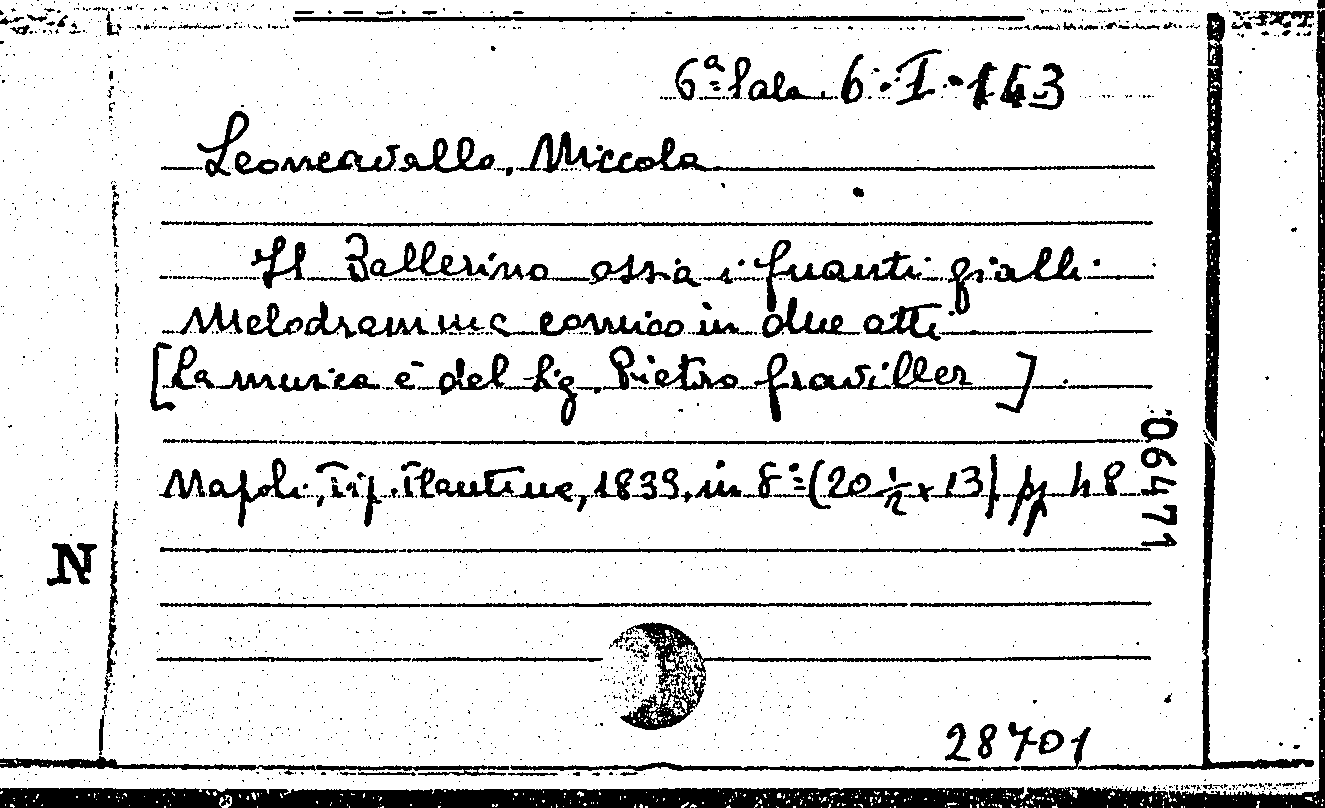 6ª Sala. 6. I. 143
Leoncavallo, Niccola
Il Ballerino ossia i guanti gialli.
Melodramma comico in due atti.
[La musica è del Sig. Pietro Graviller]
Napoli, Tip. Plautina, 1839, in 8º (20 ½ x 13) pp 48
06471
N
28701